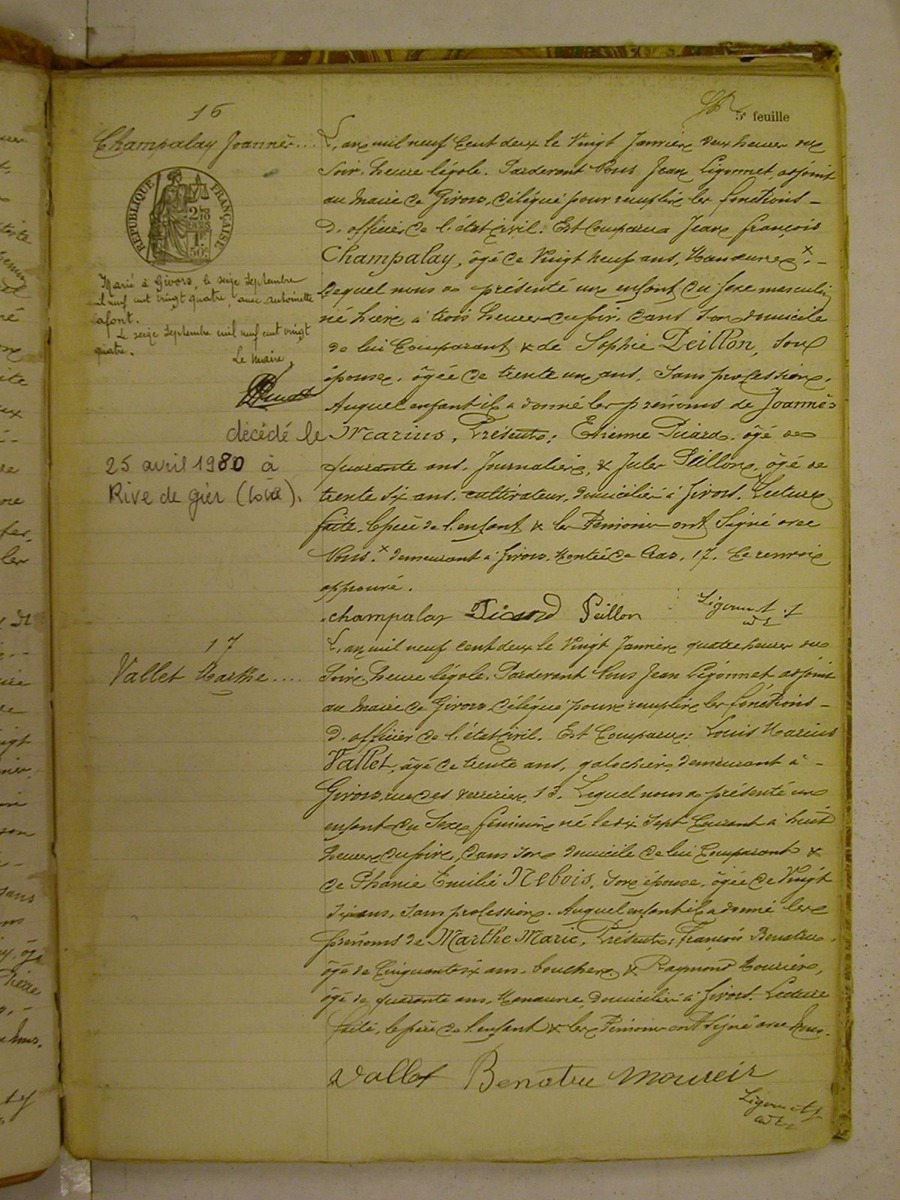 5e feuille
16
Champalay Joannès...
RÉPUBLIQUE FRANÇAISE
Marié à Givors, le seize Septembre
mil neuf cent vingt quatre avec antoinette
Lafont.
Le seize Septembre mil neuf cent vingt
quatre.
Le Maire
décédé le
25 avril 1980 à
Rive de gier (Loire).
L'an mil neuf cent deux le Vingt Janvier deux heures du
Soir, heure légale. Pardevant Nous Jean Ligonnet, adjoint
au Maire de Givors, délégué pour remplir les fonctions
d'officier de l'état civil. Est Comparu Jean François
Champalay, âgé de Vingt neuf ans, Manœuvre x.
Lequel nous a présenté un enfant du sexe masculin
né hier à trois heures du soir dans son domicile
de lui Comparant & de Sophie Peillon, son
épouse, âgée de trente un ans, Sans profession.
Auquel enfant il a donné les prénoms de Joannès
Marius. Présents: Etienne Picard, âgé de
quarante ans, Journalier, & Jules Peillon, âgé de
trente six ans, cultivateur, domiciliés à Givors. Lecture
faite, le père de l'enfant & les Témoins ont Signé avec
Nous. x demeurant à Givors, Montée de Cras, 17. Le renvoi
approuvé.
champalay Picard Peillon Ligonnet
17
Vallet Marthe....
L'an mil neuf cent deux le Vingt Janvier quatre heures du
Soir, heure légale. Pardevant Nous Jean Ligonnet adjoint
au Maire de Givors, délégué pour remplir les fonctions
d'officier de l'état civil. Est Comparu: Louis Marius
Vallet, âgé de trente ans, galochier, demeurant à
Givors, rue des Verreries, 13. Lequel nous a présenté un
enfant du Sexe féminin né le dix Sept Courant à huit
heures du soir, dans son domicile de lui Comparant &
de Phanie Emilie Nebois, son épouse, âgée de Vingt
Six ans, Sans profession. Auquel enfant il a donné les
prénoms de Marthe Marie. Présents: François Benatru,
âgé de Cinquante six ans, boucher, & Raymond Mourier,
âgé de quarante ans, Manœuvre, domiciliés à Givors. Lecture
faite, le père de l'enfant & les Témoins ont Signé avec Nous.
Vallet Benatru
Ligonnet